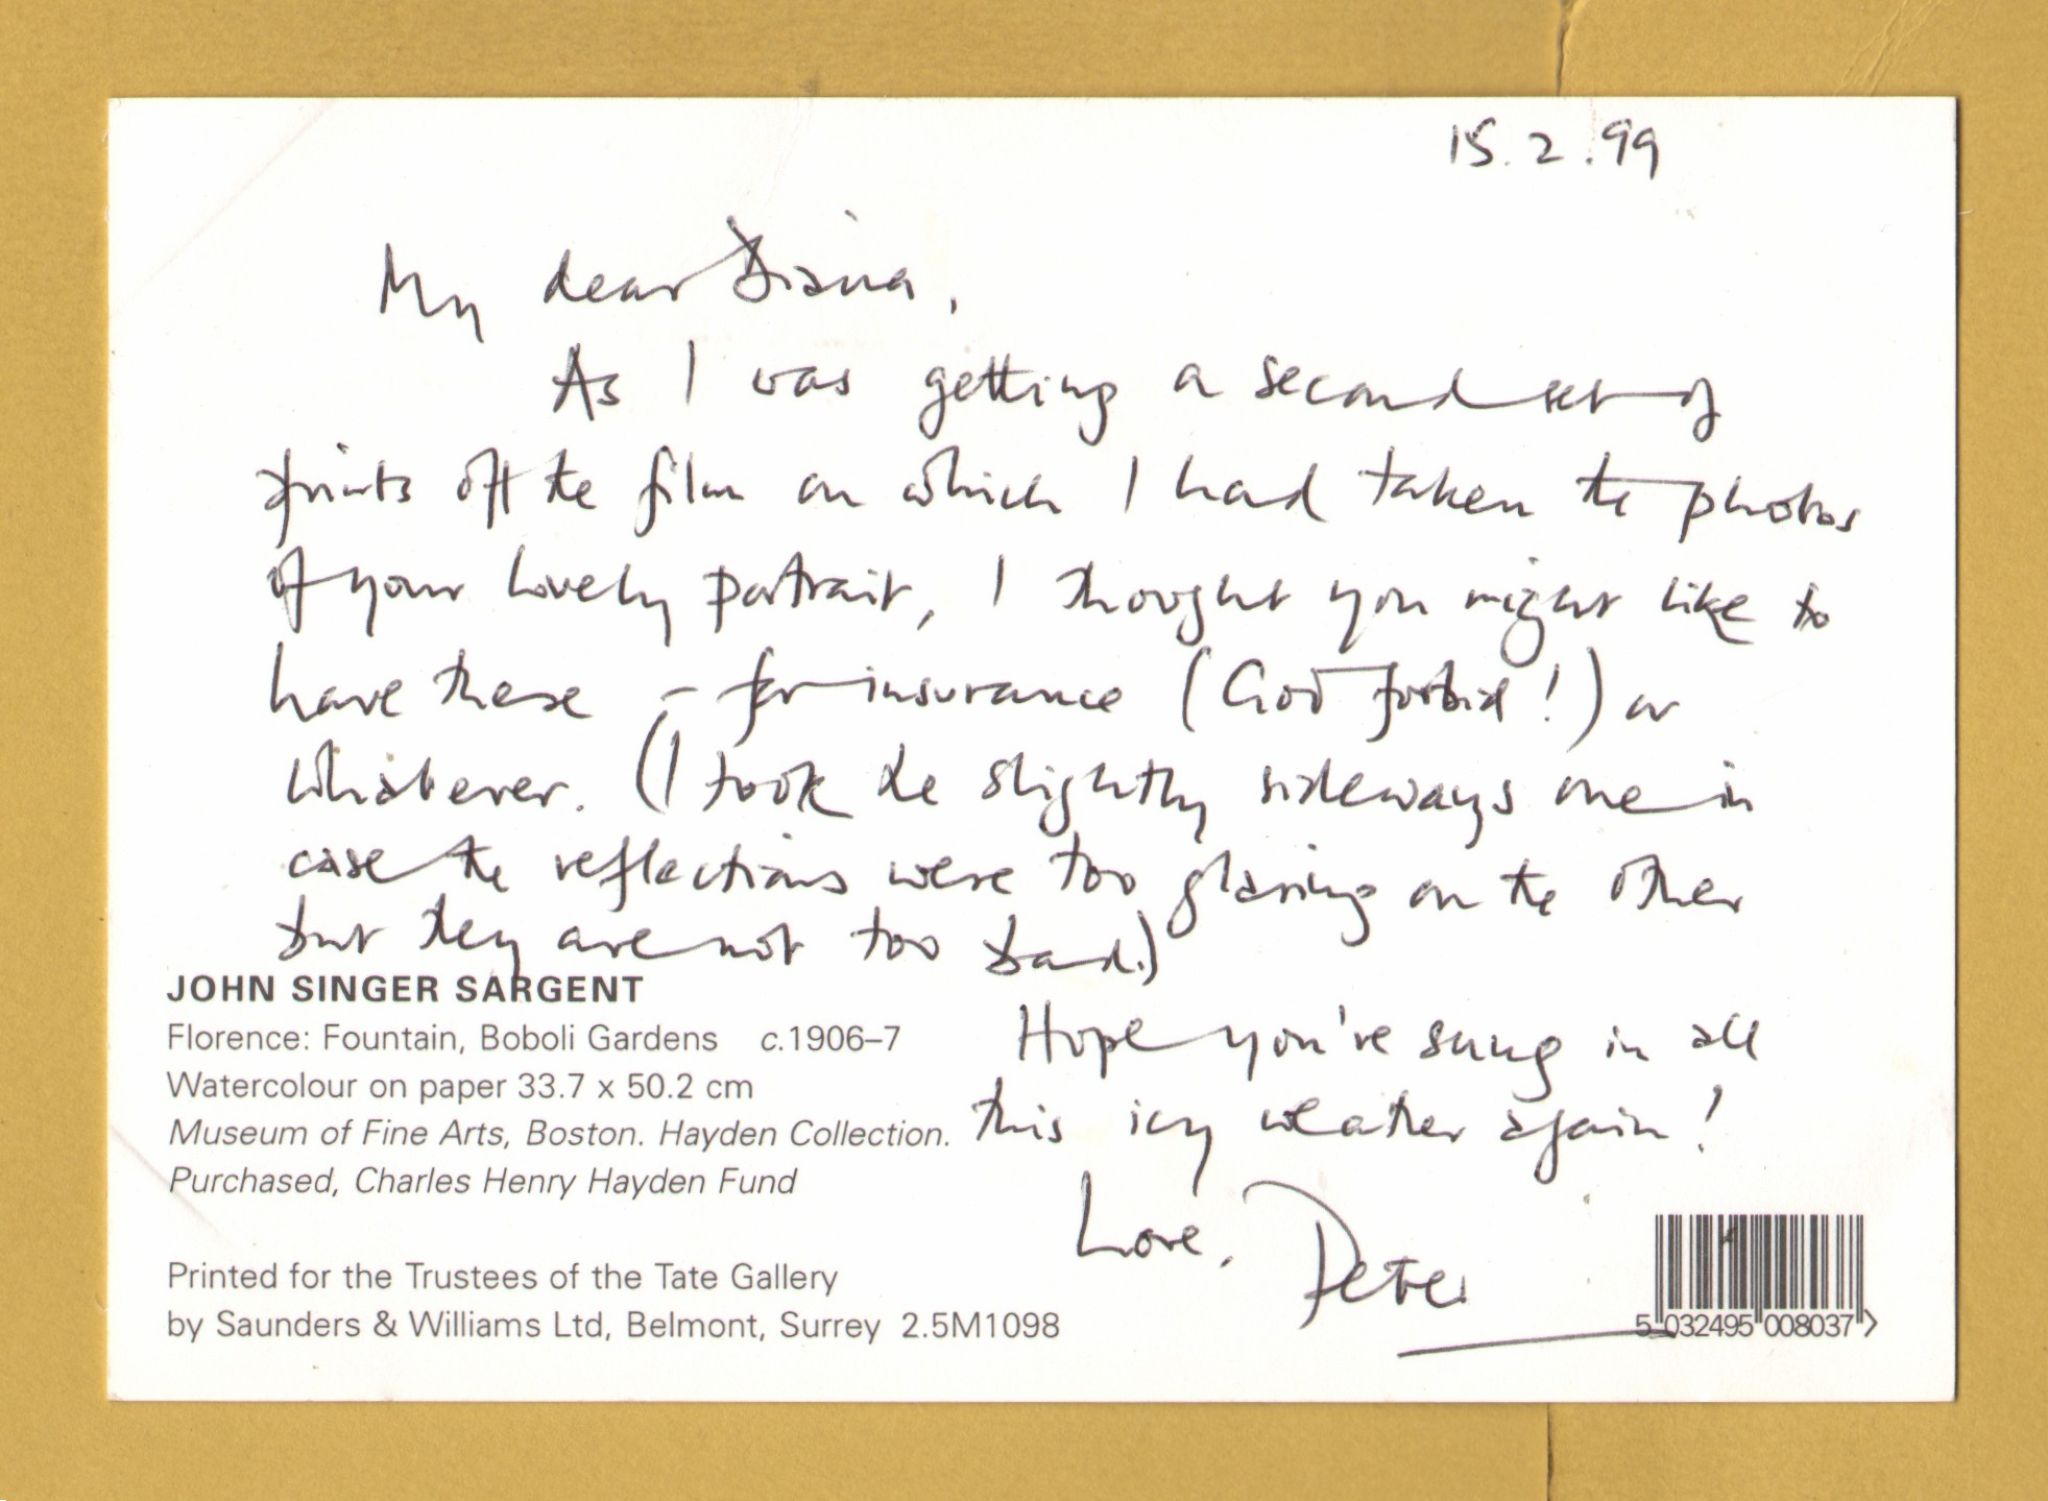 15.2.99
My dear Diana,
As I was getting a second set of
prints off the film on which I had taken the photos
of your lovely portrait, I thought you might like to
have these - for insurance (God forbid!) or
whatever. (I took the slightly sideways one in
case the reflections were too glaring on the other
but they are not too bad.)
JOHN SINGER SARGENT
Florence: Fountain, Boboli Gardens c.1906–7
Watercolour on paper 33.7 x 50.2 cm
Museum of Fine Arts, Boston. Hayden Collection.
Purchased, Charles Henry Hayden Fund
Hope you've snug in all
this icy weather again!
Love, Peter
Printed for the Trustees of the Tate Gallery
by Saunders & Williams Ltd, Belmont, Surrey 2.5M1098
5 032495 008037 >